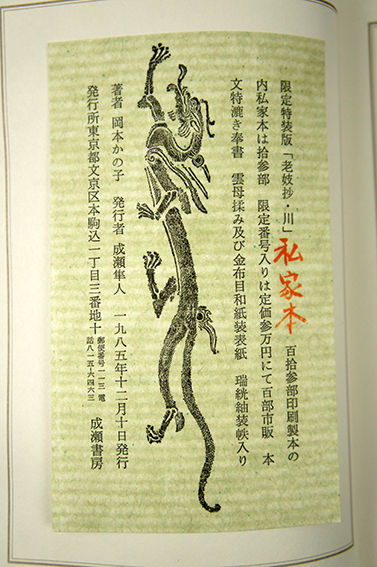 限定特装版「老妓抄・川」私家本 百拾参部印刷製本の
内私家本は拾参部 限定番号入りは定価参万円にて百部市販 本
文特漉き奉書 雲母揉み及び金布目和紙装表紙 瑞絖紬装帙入り
著者 岡本かの子 発行者 成瀬隼人 一九八五年十二月十日発行
発行所東京都文京区本駒込一丁目三番地十 郵便番号一一三 電話八一五・六四六三 成瀬書房